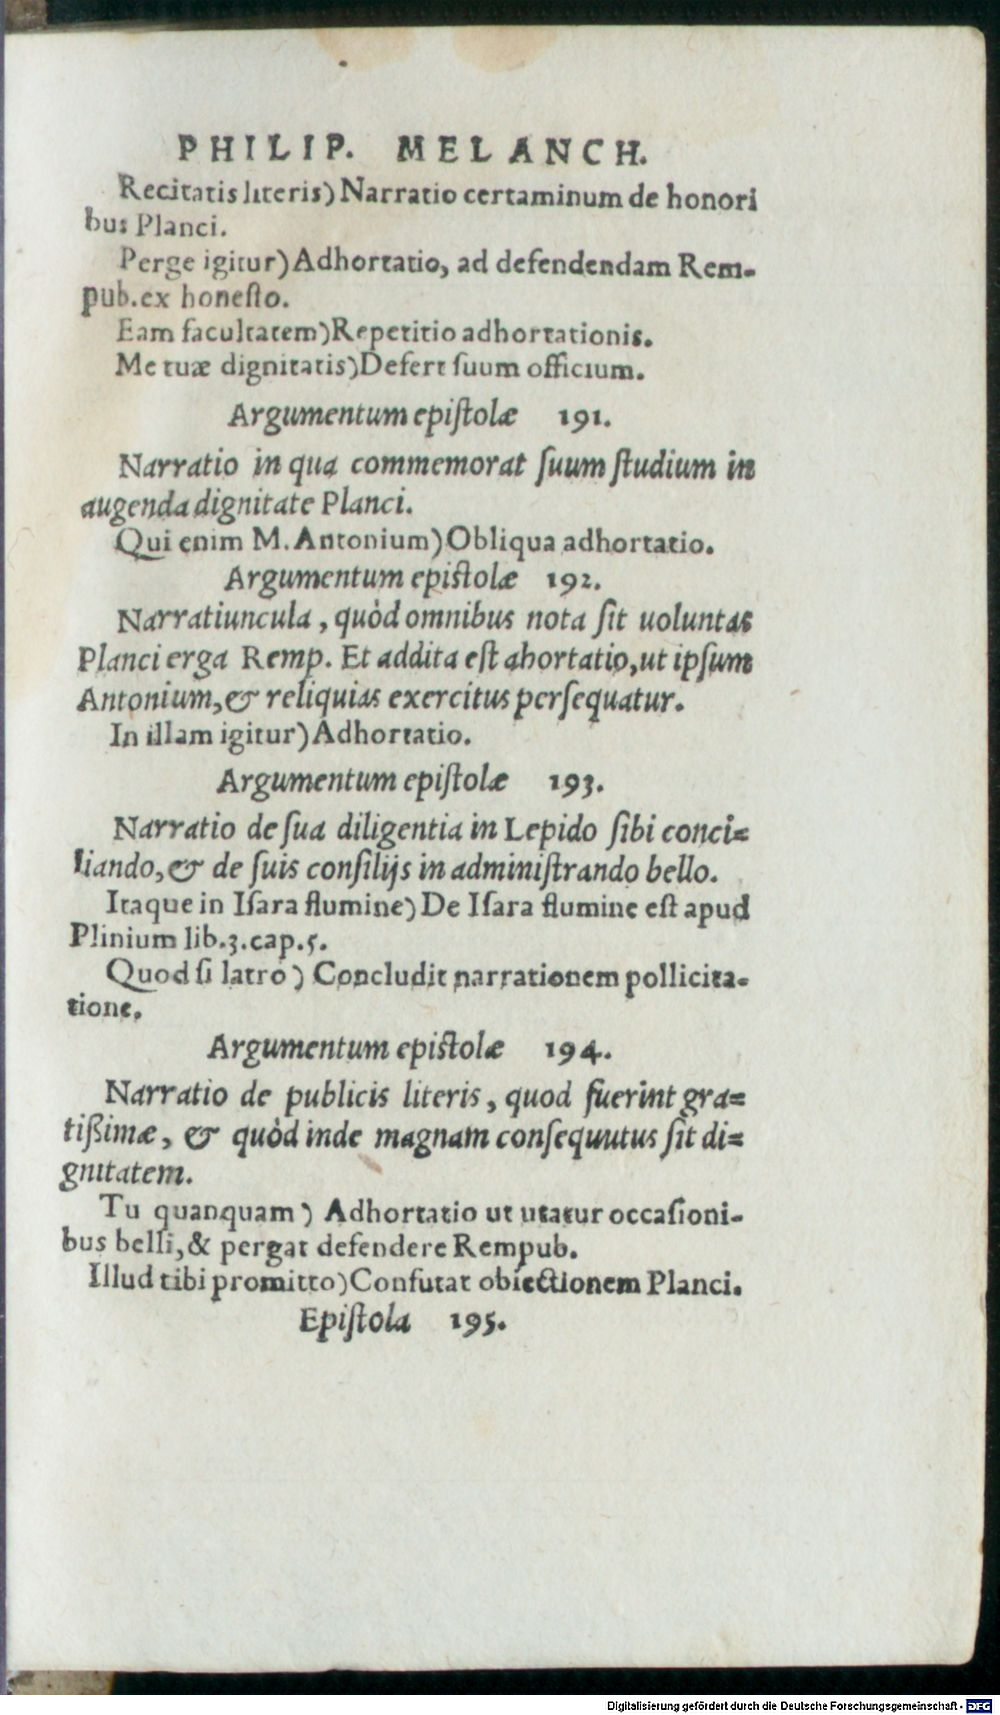 PHILIP. MELANCH.
Recitatis literis) Narratio certaminum de honori
bus Planci.
Perge igitur) Adhortatio, ad defendendam Rem-
pub. ex honeſto.
Eam facultatem) Repetitio adhortationis.
Me tuæ dignitatis) Defert ſuum officium.
Argumentum epiſtolæ 191.
Narratio in qua commemorat ſuum ſtudium in
augenda dignitate Planci.
Qui enim M. Antonium) Obliqua adhortatio.
Argumentum epiſtolæ 192.
Narratiuncula, quòd omnibus nota ſit uoluntas
Planci erga Remp. Et addita eſt ahortatio, ut ipſum
Antonium, & reliquias exercitus perſequatur.
In illam igitur) Adhortatio.
Argumentum epiſtolæ 193.
Narratio de ſua diligentia in Lepido ſibi conci=
liando, & de ſuis conſilijs in adminiſtrando bello.
Itaque in Iſara flumine) De Iſara flumine eſt apud
Plinium lib.3.cap.5.
Quod ſi latro) Concludit narrationem pollicita-
tione.
Argumentum epiſtolæ 194.
Narratio de publicis literis, quod fuerint gra=
tißimæ, & quòd inde magnam conſequutus ſit di=
gnitatem.
Tu quanquam) Adhortatio ut utatur occaſioni-
bus belli, & pergat defendere Rempub.
Illud tibi promitto) Confutat obiectionem Planci.
Epiſtola 195.
Digitalisierung gefördert durch die Deutsche Forschungsgemeinschaft - DFG